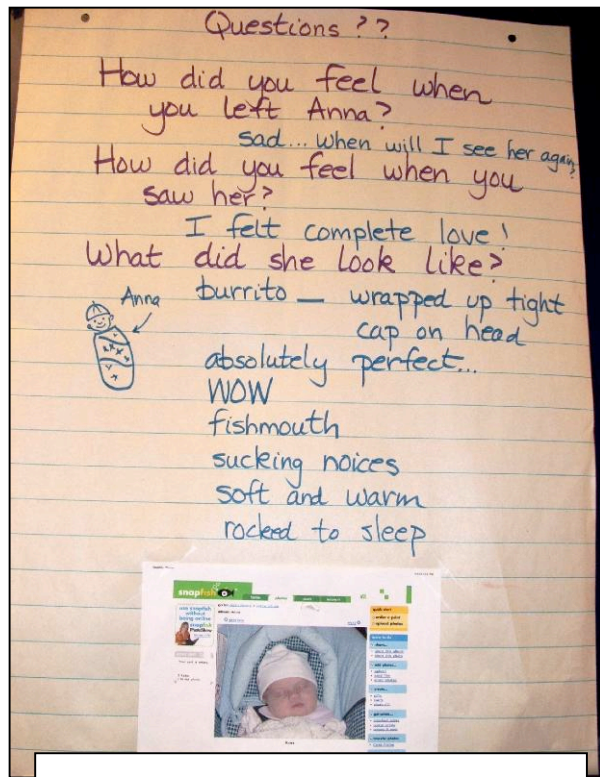 Questions ??
How did you feel when
you left Anna?
sad... when will I see her again?
How did you feel when you
saw her?
I felt complete love!
What did she look like?
Anna
burrito — wrapped up tight
cap on head
absolutely perfect...
WOW
fishmouth
sucking noices
soft and warm
rocked to sleep
snapfish